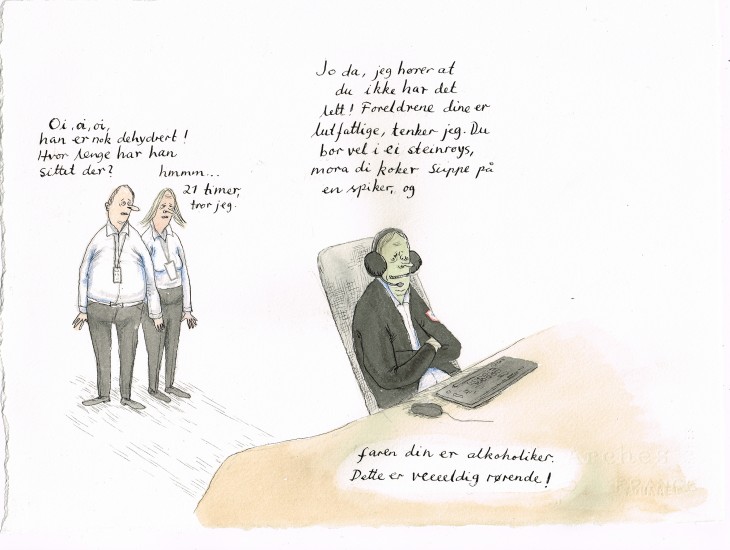 Oi, oi, oi,
han er nok dehydrert!
Hvor lenge har han
sittet der?
hmmm...
21 timer,
tror jeg.
Jo da, jeg hører at
du ikke har det
lett! Foreldrene dine er
lutfattige, tenker jeg. Du
bor vel i ei steinrøys,
mora di koker suppe på
en spiker, og
faren din er alkoholiker.
Dette er veeeldig rørende!